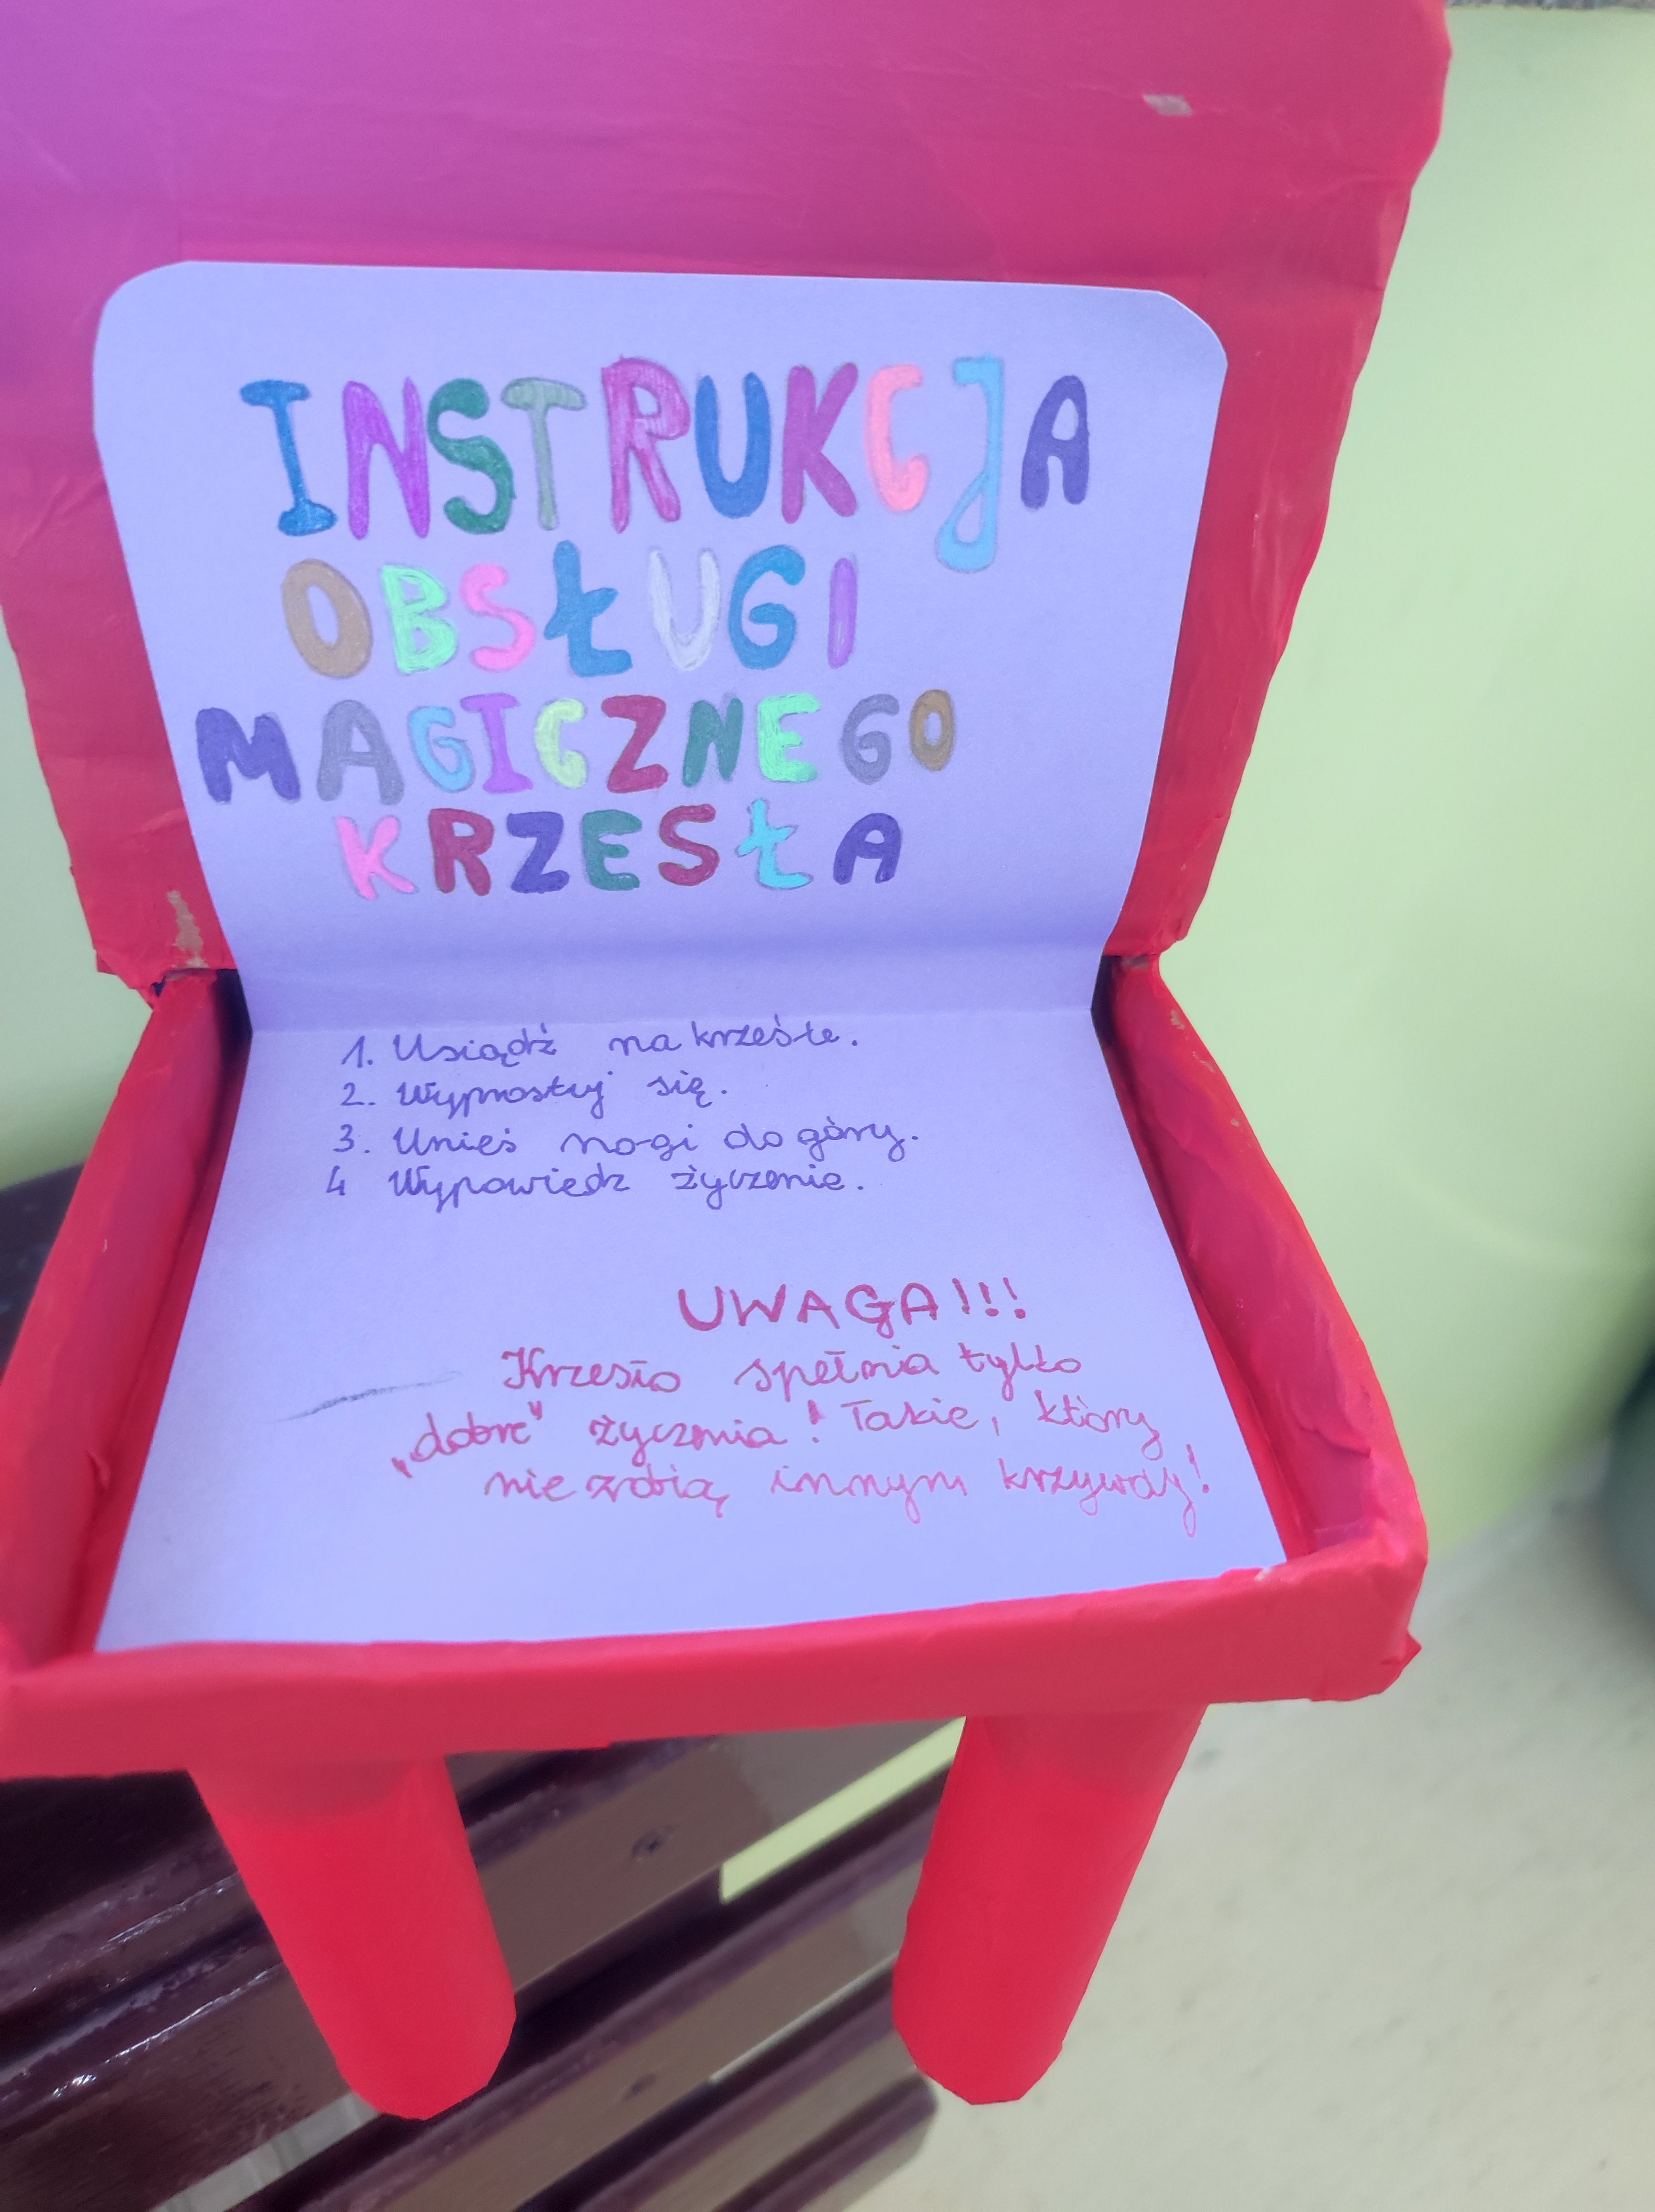 INSTRUKCJA
OBSŁUGI
MAGICZNEGO
KRZESŁA
1. Usiądź na krześle.
2. Wyprostuj się.
3. Unieś nogi do góry.
4 Wypowiedz życzenie.
UWAGA!!!
Krzesło spełnia tylko
„dobre” życzenia! Takie, który
nie zrobią innym krzywdy!